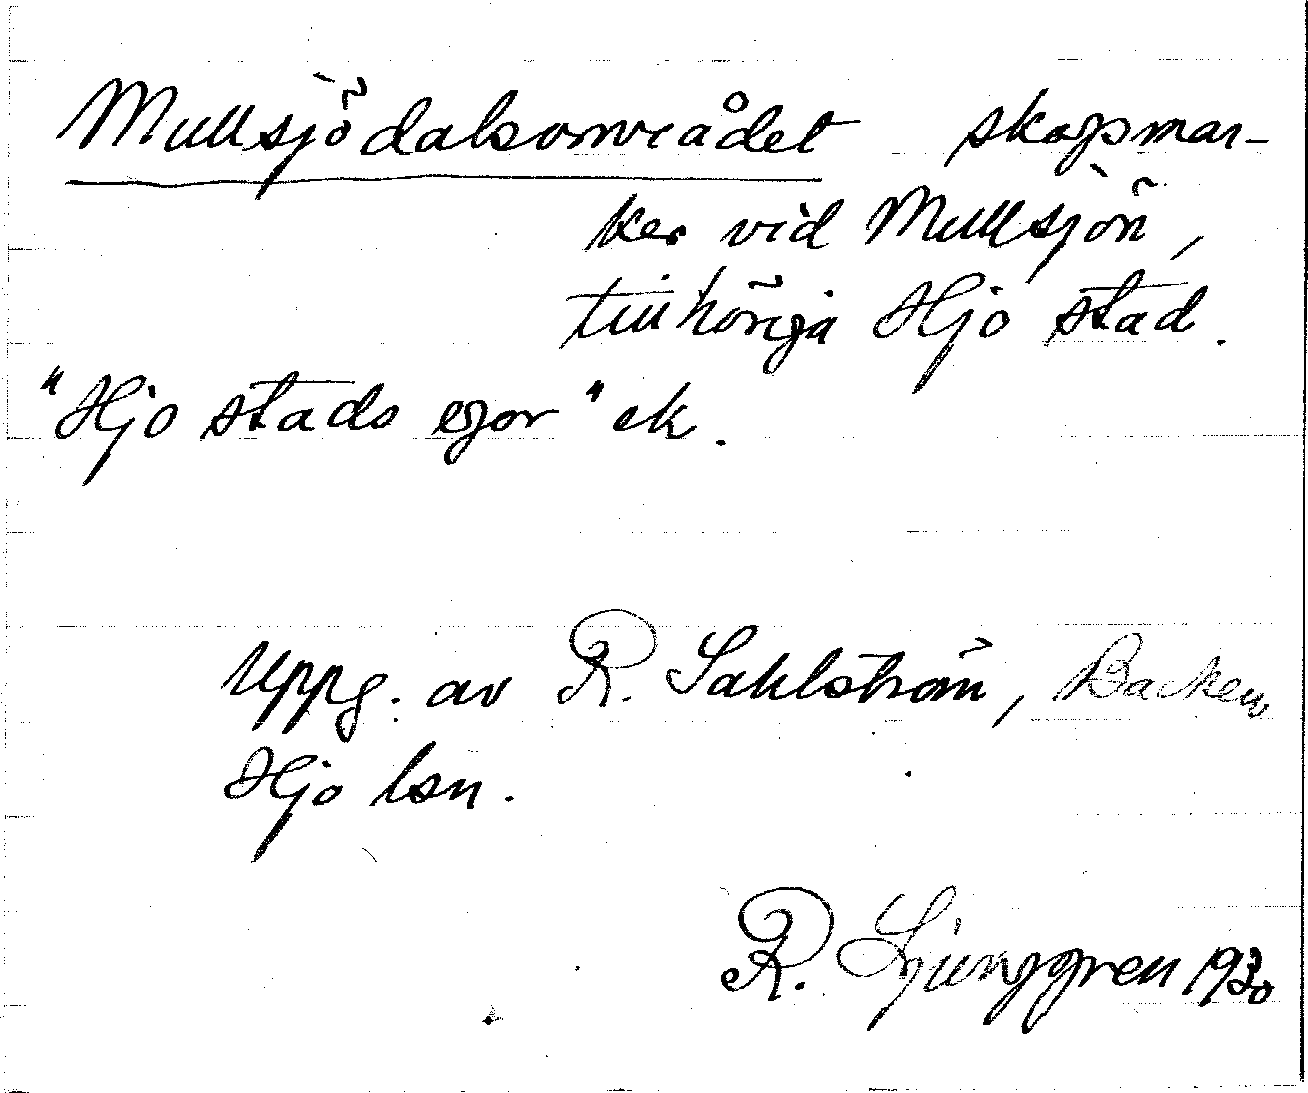 Mullsjödalsområdet skogsmar-
ker vid Mullsjön,
tillhöriga Hjo stad.
"Hjo stads egor" ek.
Uppg. av R. Sahlström, Backen
Hjo lsn.
R. Ljunggren 1930